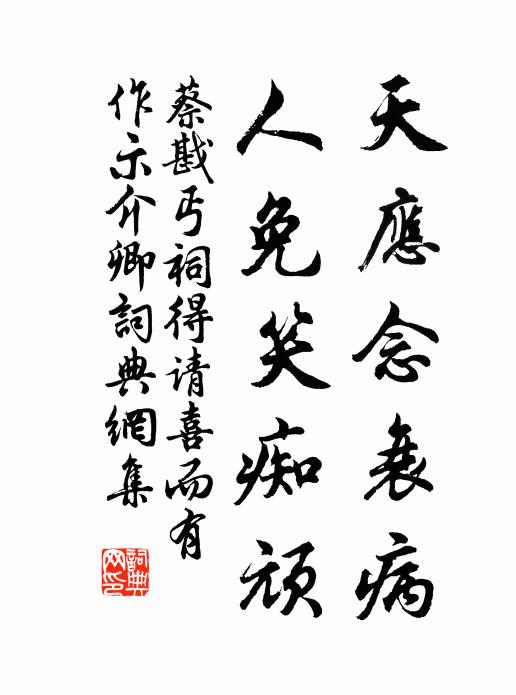 天應念衰病
人免笑痴頑
蔡戡丐祠得请喜而有
作示介卿詞典網集
詞典網印